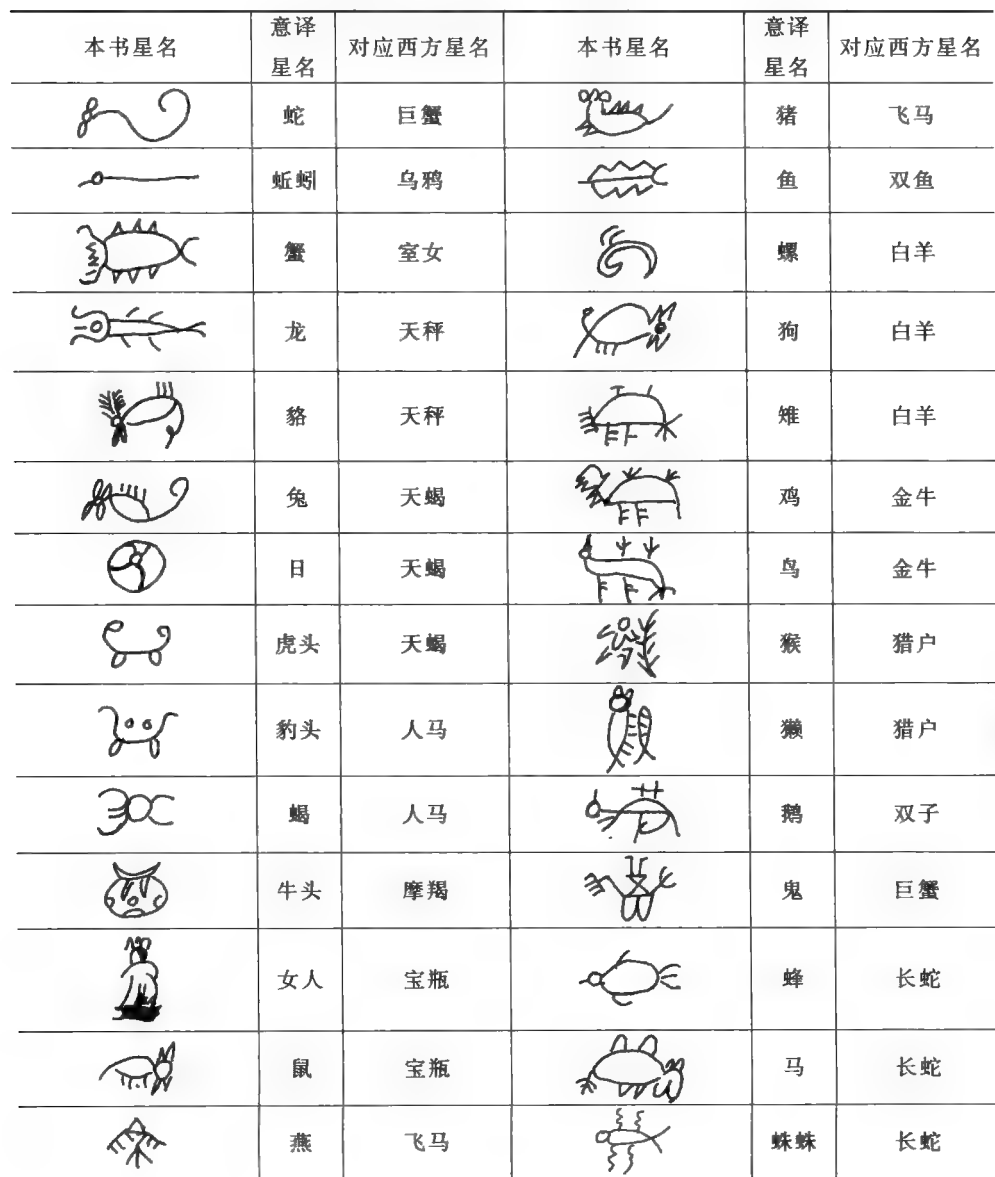 本书星名 意译星名 对应西方星名 本书星名 意译星名 对应西方星名
蛇 巨蟹 猪 飞马
蚯蚓 乌鸦 鱼 双鱼
蟹 室女 螺 白羊
龙 天秤 狗 白羊
貉 天秤 雉 白羊
兔 天蝎 鸡 金牛
日 天蝎 鸟 金牛
虎头 天蝎 猴 猎户
豹头 人马 獭 猎户
蝎 人马 鹅 双子
牛头 摩羯 鬼 巨蟹
女人 宝瓶 蜂 长蛇
鼠 宝瓶 马 长蛇
燕 飞马 蛛蛛 长蛇